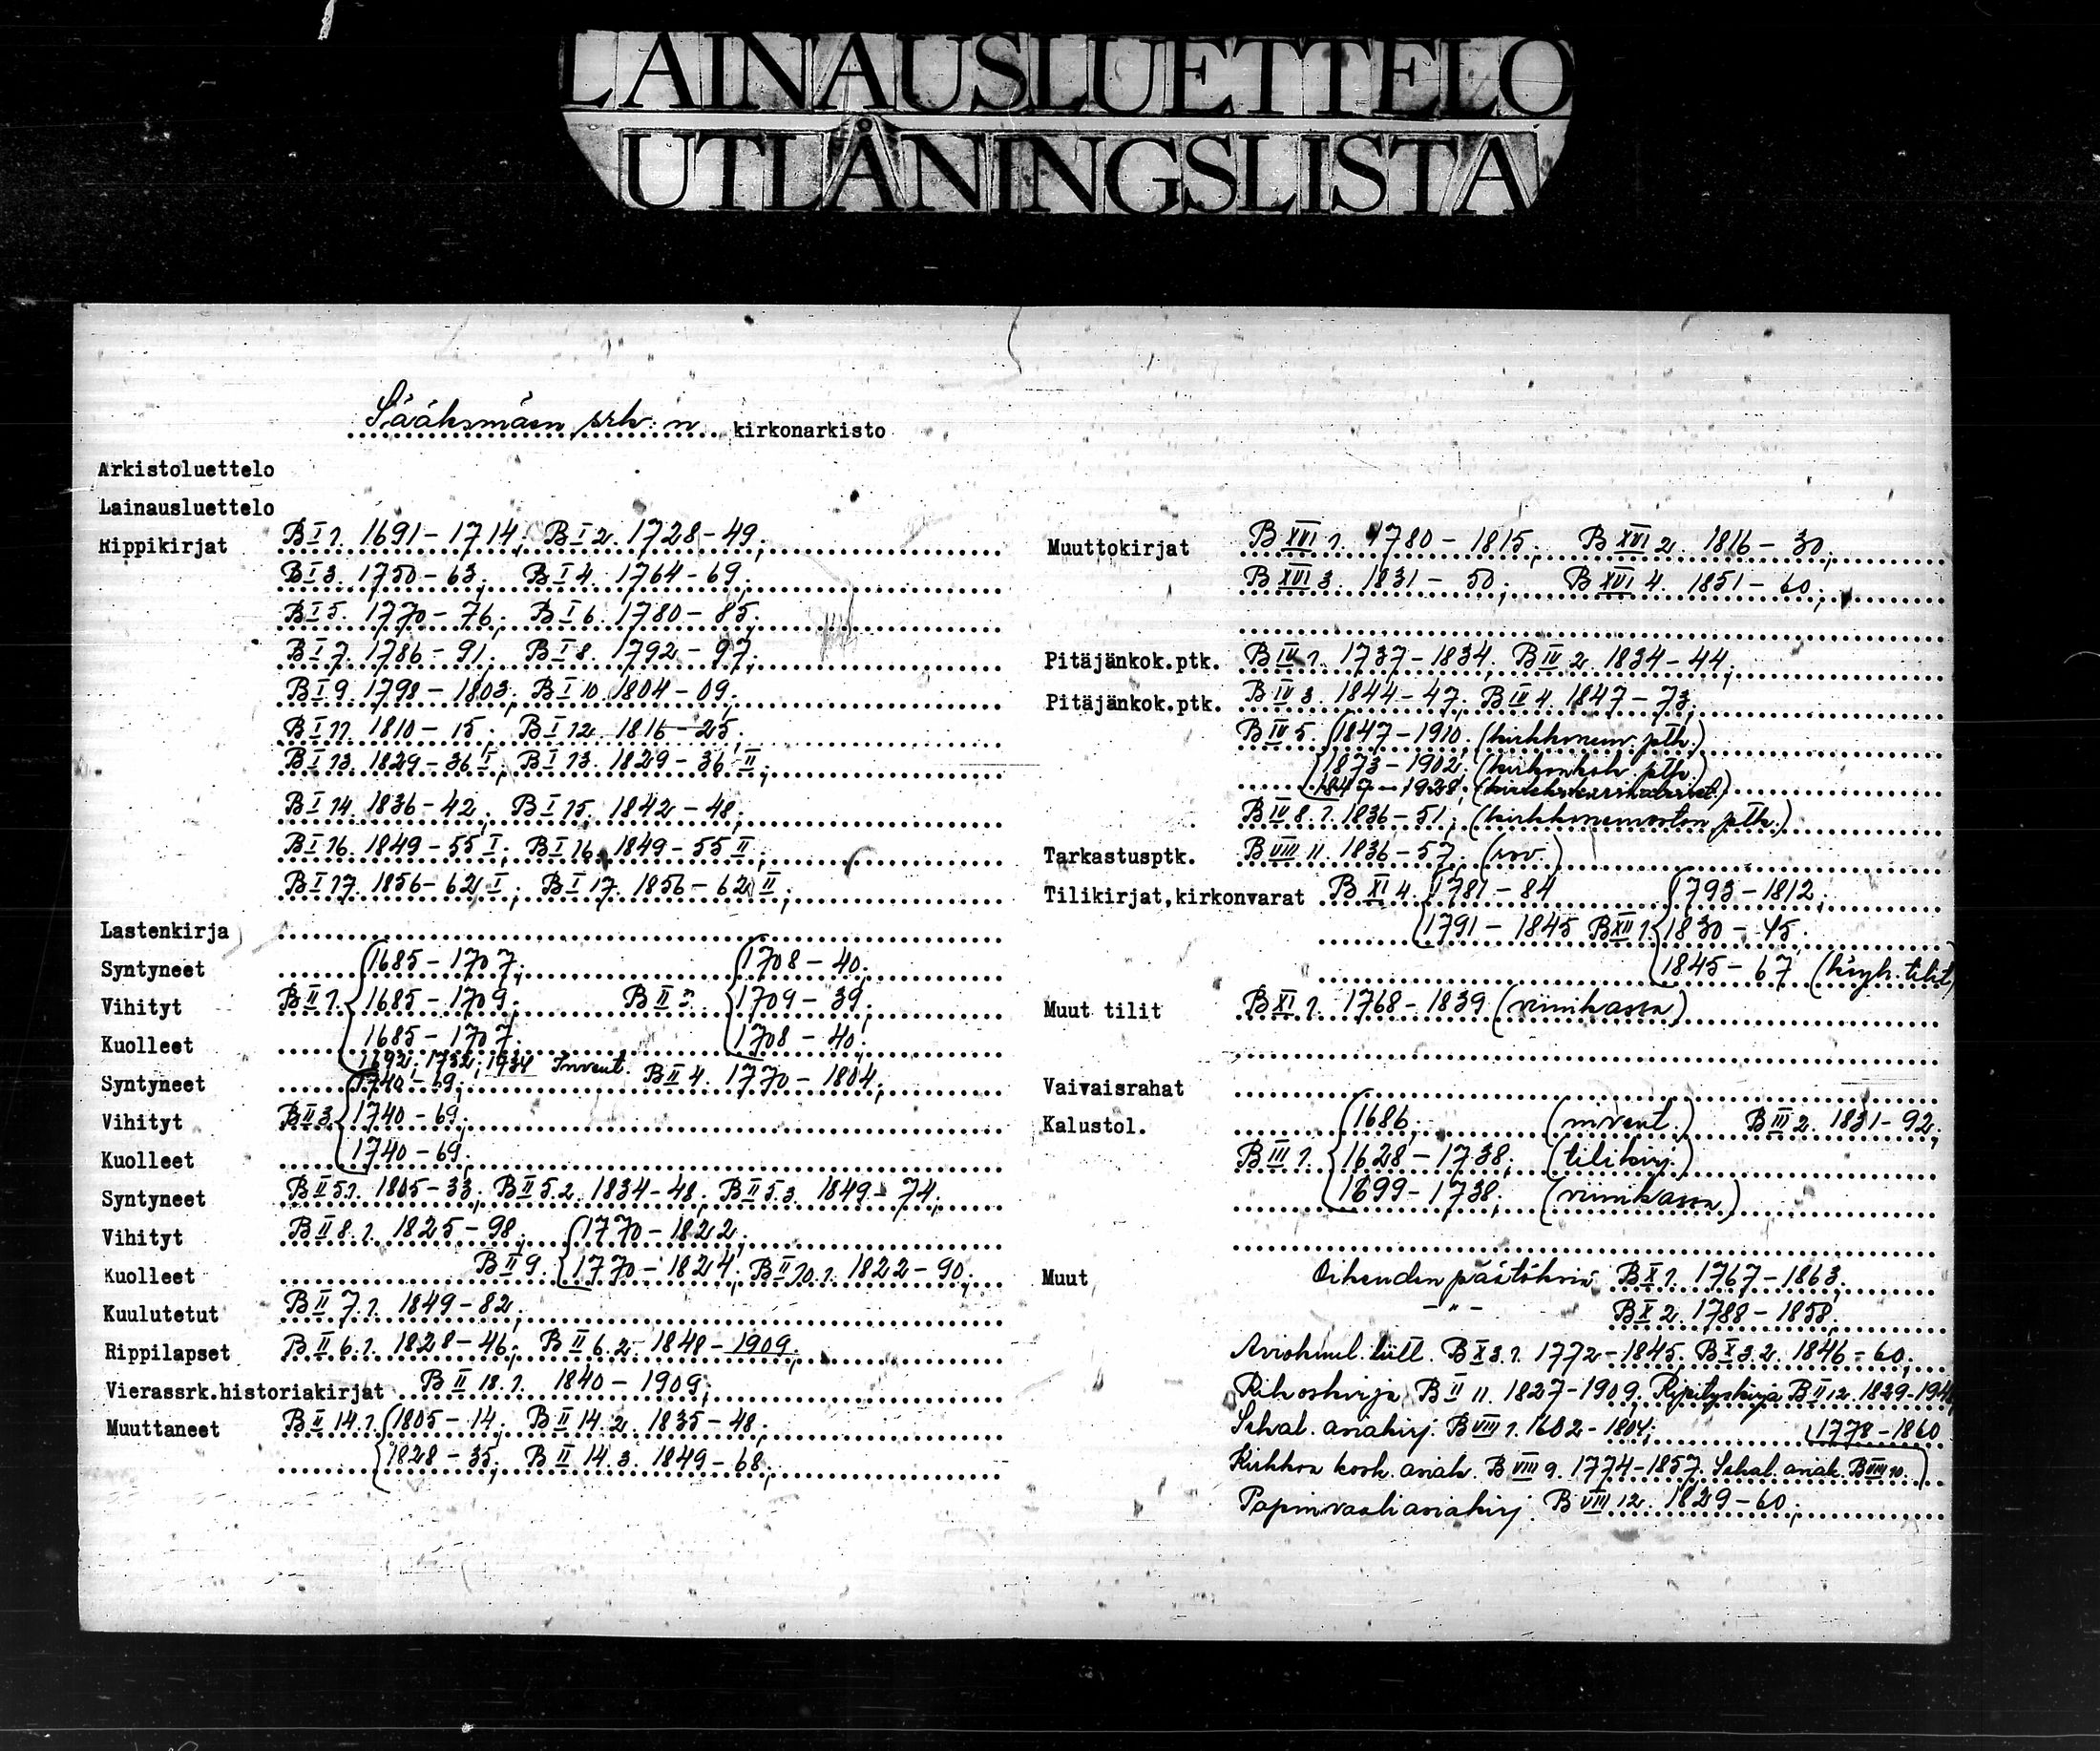 LAINAUSLUETTELO
UTLÅNINGSLISTA
Sääksmäen srk:n kirkonarkisto
Arkistoluettelo
Lainausluettelo
Rippikirjat B I 1. 1691-1714; B I 2. 1728-49;
B I 3. 1750-63; B I 4. 1764-69;
B I 5. 1770-76; B I 6. 1780-85;
B I 7. 1786-91; B I 8. 1792-97;
B I 9. 1798-1803; B I 10. 1804-09;
B I 11. 1810-15; B I 12. 1816-25;
B I 13. 1829-36 I; B I 13. 1829-36 II;
B I 14. 1836-42; B I 15. 1842-48;
B I 16. 1849-55 I; B I 16. 1849-55 II;
B I 17. 1856-62 I; B I 17. 1856-62 II;
Lastenkirja
Syntyneet 1685-1707; 1708-40;
Vihityt B II 1. 1685-1709; B II 2. 1709-39;
Kuolleet 1685-1707; 1708-40;
1692; 1732; 1734 Invent.
Syntyneet 1740-69; B II 4. 1770-1804;
Vihityt B II 3. 1740-69;
Kuolleet 1740-69;
Syntyneet B II 5.1. 1805-33; B II 5.2. 1834-48; B II 5.3. 1849-74;
Vihityt B II 8.1. 1825-98; 1770-1822;
Kuolleet B II 9. 1770-1824; B II 10.1. 1822-90;
Kuulutetut B II 7.1. 1849-82;
Rippilapset B II 6.1. 1828-46; B II 6.2. 1848-1909;
Vierassrk.historiakirjat B II 18.1. 1840-1909;
Muuttaneet B II 14.1. 1805-14; B II 14.2. 1835-48;
1828-35; B II 14.3. 1849-68;
Muuttokirjat B XVI 1. 1780-1815; B XVI 2. 1816-30;
B XVI 3. 1831-50; B XVI 4. 1851-60;
Pitäjänkok.ptk. B IV 1. 1737-1834; B IV 2. 1834-44;
Pitäjänkok.ptk. B IV 3. 1844-47; B IV 4. 1847-73;
B IV 5. 1847-1910; (kirkkoneuv. ptk.)
1873-1902; (kirkonkok. ptk.)
1847-1928;
B IV 8.1. 1836-51; (kirkkoneuvoston ptk.)
Tarkastusptk. B VIII 11. 1836-57; (rov.)
Tilikirjat,kirkonvarat B XI 4. 1781-84 1793-1812;
1791-1845 B XII 1. 1830-45;
1845-67 (köyh. tilit)
Muut tilit B XI 1. 1768-1839 (viinikassa)
Vaivaisrahat
Kalustol. 1686; (invent.) B III 2. 1831-92;
B III 1. 1628-1738; (tilikirj.)
1699-1738; (viinikassa)
Muut Oikeuden päätöksiä B X 1. 1767-1863;
-"- B X 2. 1788-1858;
Aviokuul. luett. B X 3.1. 1772-1845; B X 3.2. 1846-60;
Rikoskirja B II 11. 1827-1909; Ripityskirja B II 12. 1829-1944
Sekal. asiakirj. B VIII 1. 1602-1804; 1778-1860
Kirkkoa kosk. asiak. B VIII 9. 1774-1857; Sekal. asiak. B VIII 10.
Papinvaaliasiakirj. B VIII 12. 1829-60;